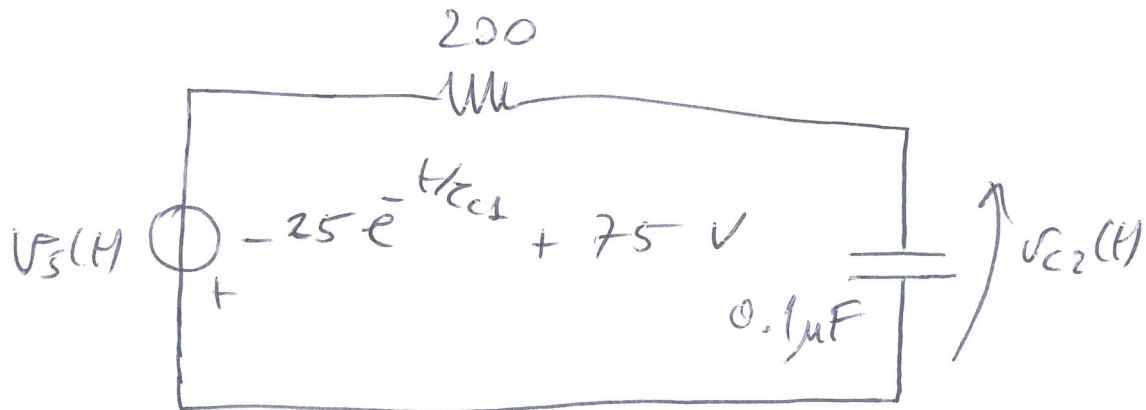 200
V_s(t) - 25 e^{-t/τ_{c1}} + 75 V
+
0.1μF
V_{c2}(t)